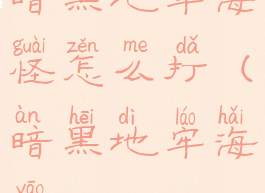 暗黑地牢海
guài zěn me dǎ
怪怎么打（
àn hēi dì láo hǎi
暗黑地牢海
yāo